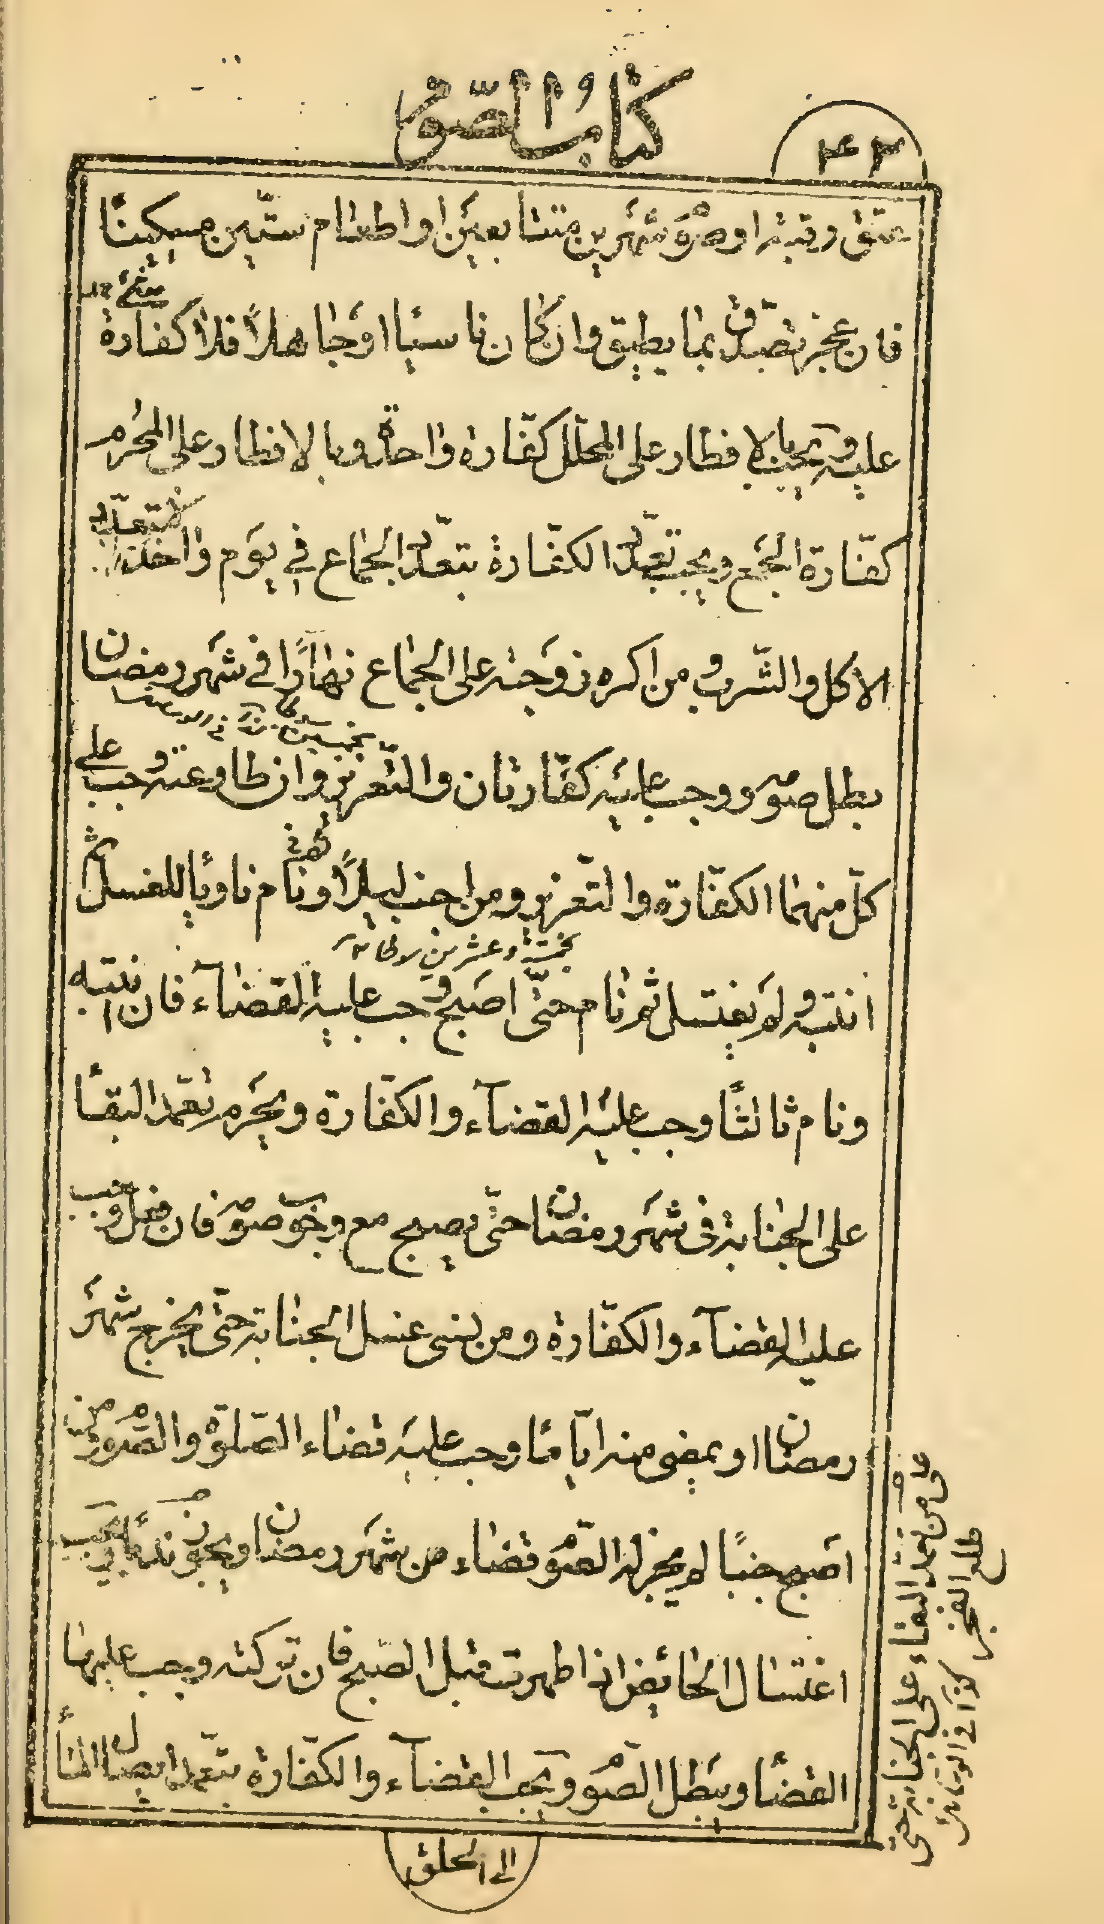 كتاب الصوم
٤٢
عتق رقبة او صوم شهرين متتابعين او اطعام ستين مسكينًا
فان عجز تصدّق بما يطيق وان كان ناسيا او جاهلًا فلا كفّارة
عليه و يجب بالافطار على المحلّل كفّارة واحدة وبالافطار على المحرم
كفّارة الجمع ويجب تعدّد الكفّارة بتعدّد الجماع في يوم واحد لا بتعدّد
الاكل والشّرب و من اكره زوجته على الجماع نهارًا في شهر رمضان
بطل صومه ووجب عليه كفّارتان والتّعزير وان طاوعته وجب على
بخمسين
كلّ منهما الكفّارة والتّعزير ومن اجنب ليلًا ونام ناويا للغسل ثم
بخمسة و عشرين
انتبه ولم يغتسل ثم نام حتّى اصبح وجب عليه القضآء فان انتبه
ونام ثالثًا وجب عليه القضآء والكفّارة ويحرم تعمّد البقا
على الجنابة في شهر رمضان حتّى يصبح مع وجوب صومه فان فعل وجب
عليه القضآء والكفّارة ومن نسى غسل الجنابة حتّى يخرج شهر
رمضان او يمضي منه ايّامًا وجب عليه قضاء الصّلوة والصّوم ومن
اصبح جنبًا لم يجز له الصّوم قضاء من شهر رمضان ويجوز ندبًا ويجب
اغتسال الحائض اذا طهرت قبل الصّبح فان تركته وجب عليها
القضا ويبطل الصّوم ويجب القضآء والكفّارة بتعمّد ايصال الماء
الى الحلق
من تعمد البقاء على الجنابة حتى
طلع الفجر كذا في الوسائل